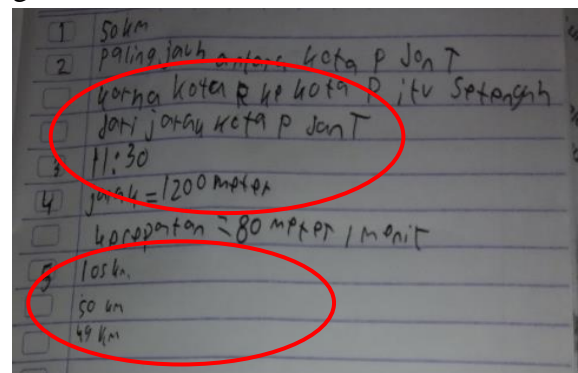 1 50 km
2 paling jauh antara kota P dan T
karna kota R ke kota P itu setengah
dari jarak kota P dan T
3 11:30
4 jarak = 1200 meter
kecepatan = 80 meter / menit
5 105 km
50 km
49 km